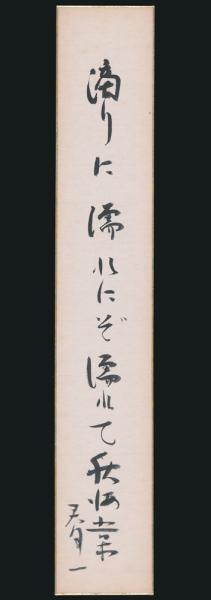 滴りに濡れにぞ濡れて秋海棠
春一